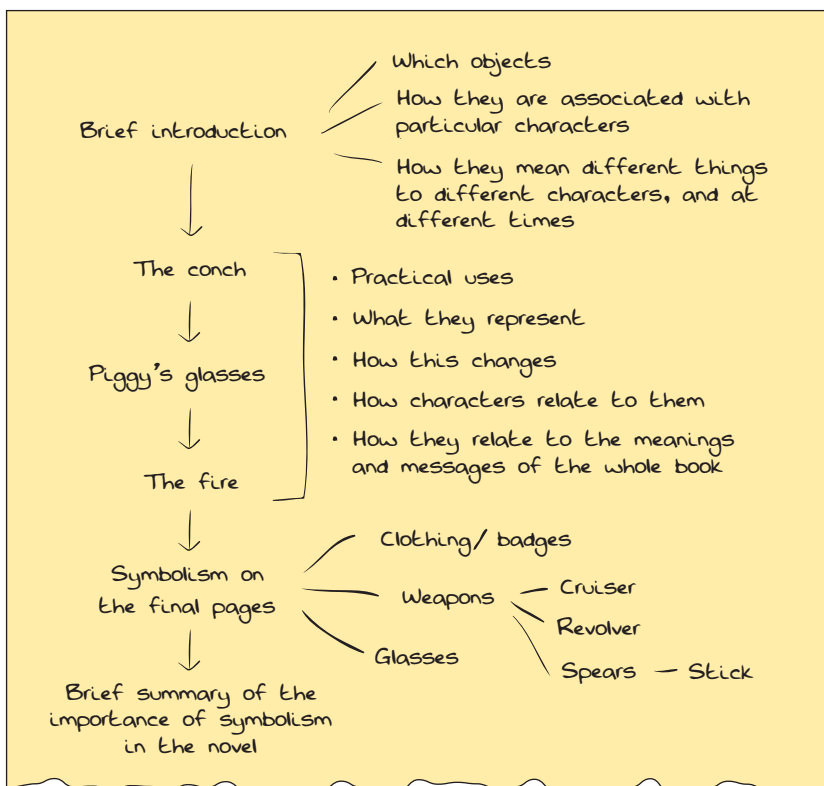 Brief introduction
Which objects
How they are associated with
particular characters
How they mean different things
to different characters, and at
different times
The conch
Piggy's glasses
The fire
• Practical uses
• What they represent
• How this changes
• How characters relate to them
• How they relate to the meanings
and messages of the whole book
Symbolism on
the final pages
Clothing/badges
Weapons
Cruiser
Revolver
Spears – Stick
Glasses
Brief summary of the
importance of symbolism
in the novel